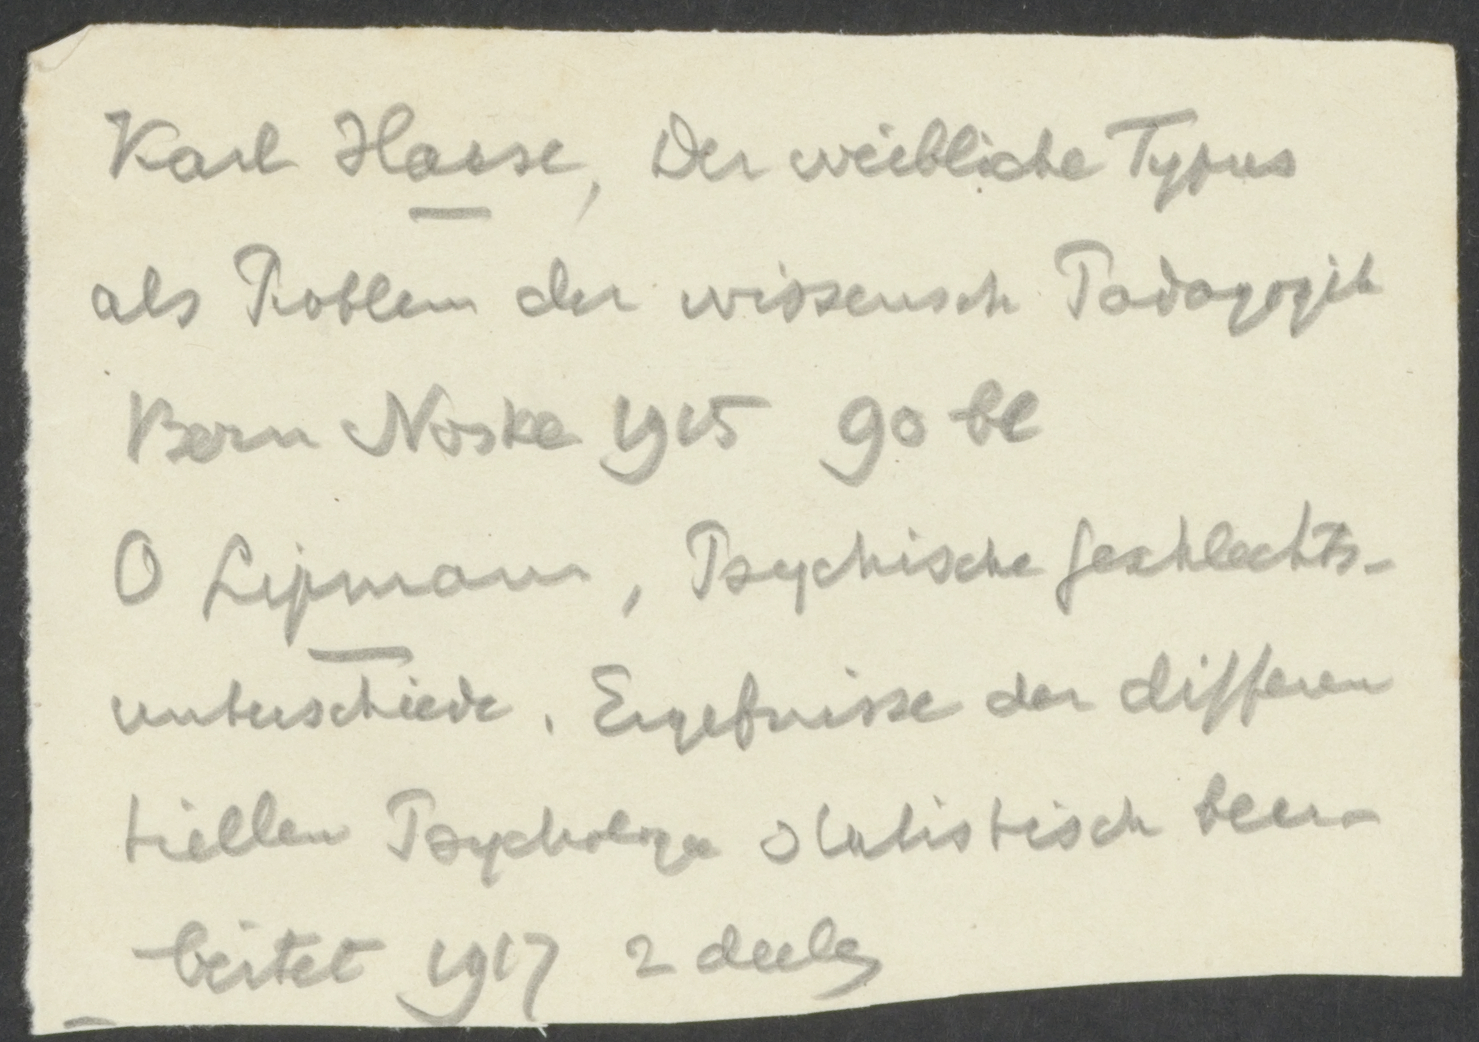 Karl Hasse, Der weibliche Typus
als Problem der wissensch Padagogik
Born Noske 1915 90 bl
O Lipmann, Psychische Geschlechts-
unterschiede. Ergebnisse der differen
tiellen Psychologie statistisch bear-
beitet 1917 2 deelen